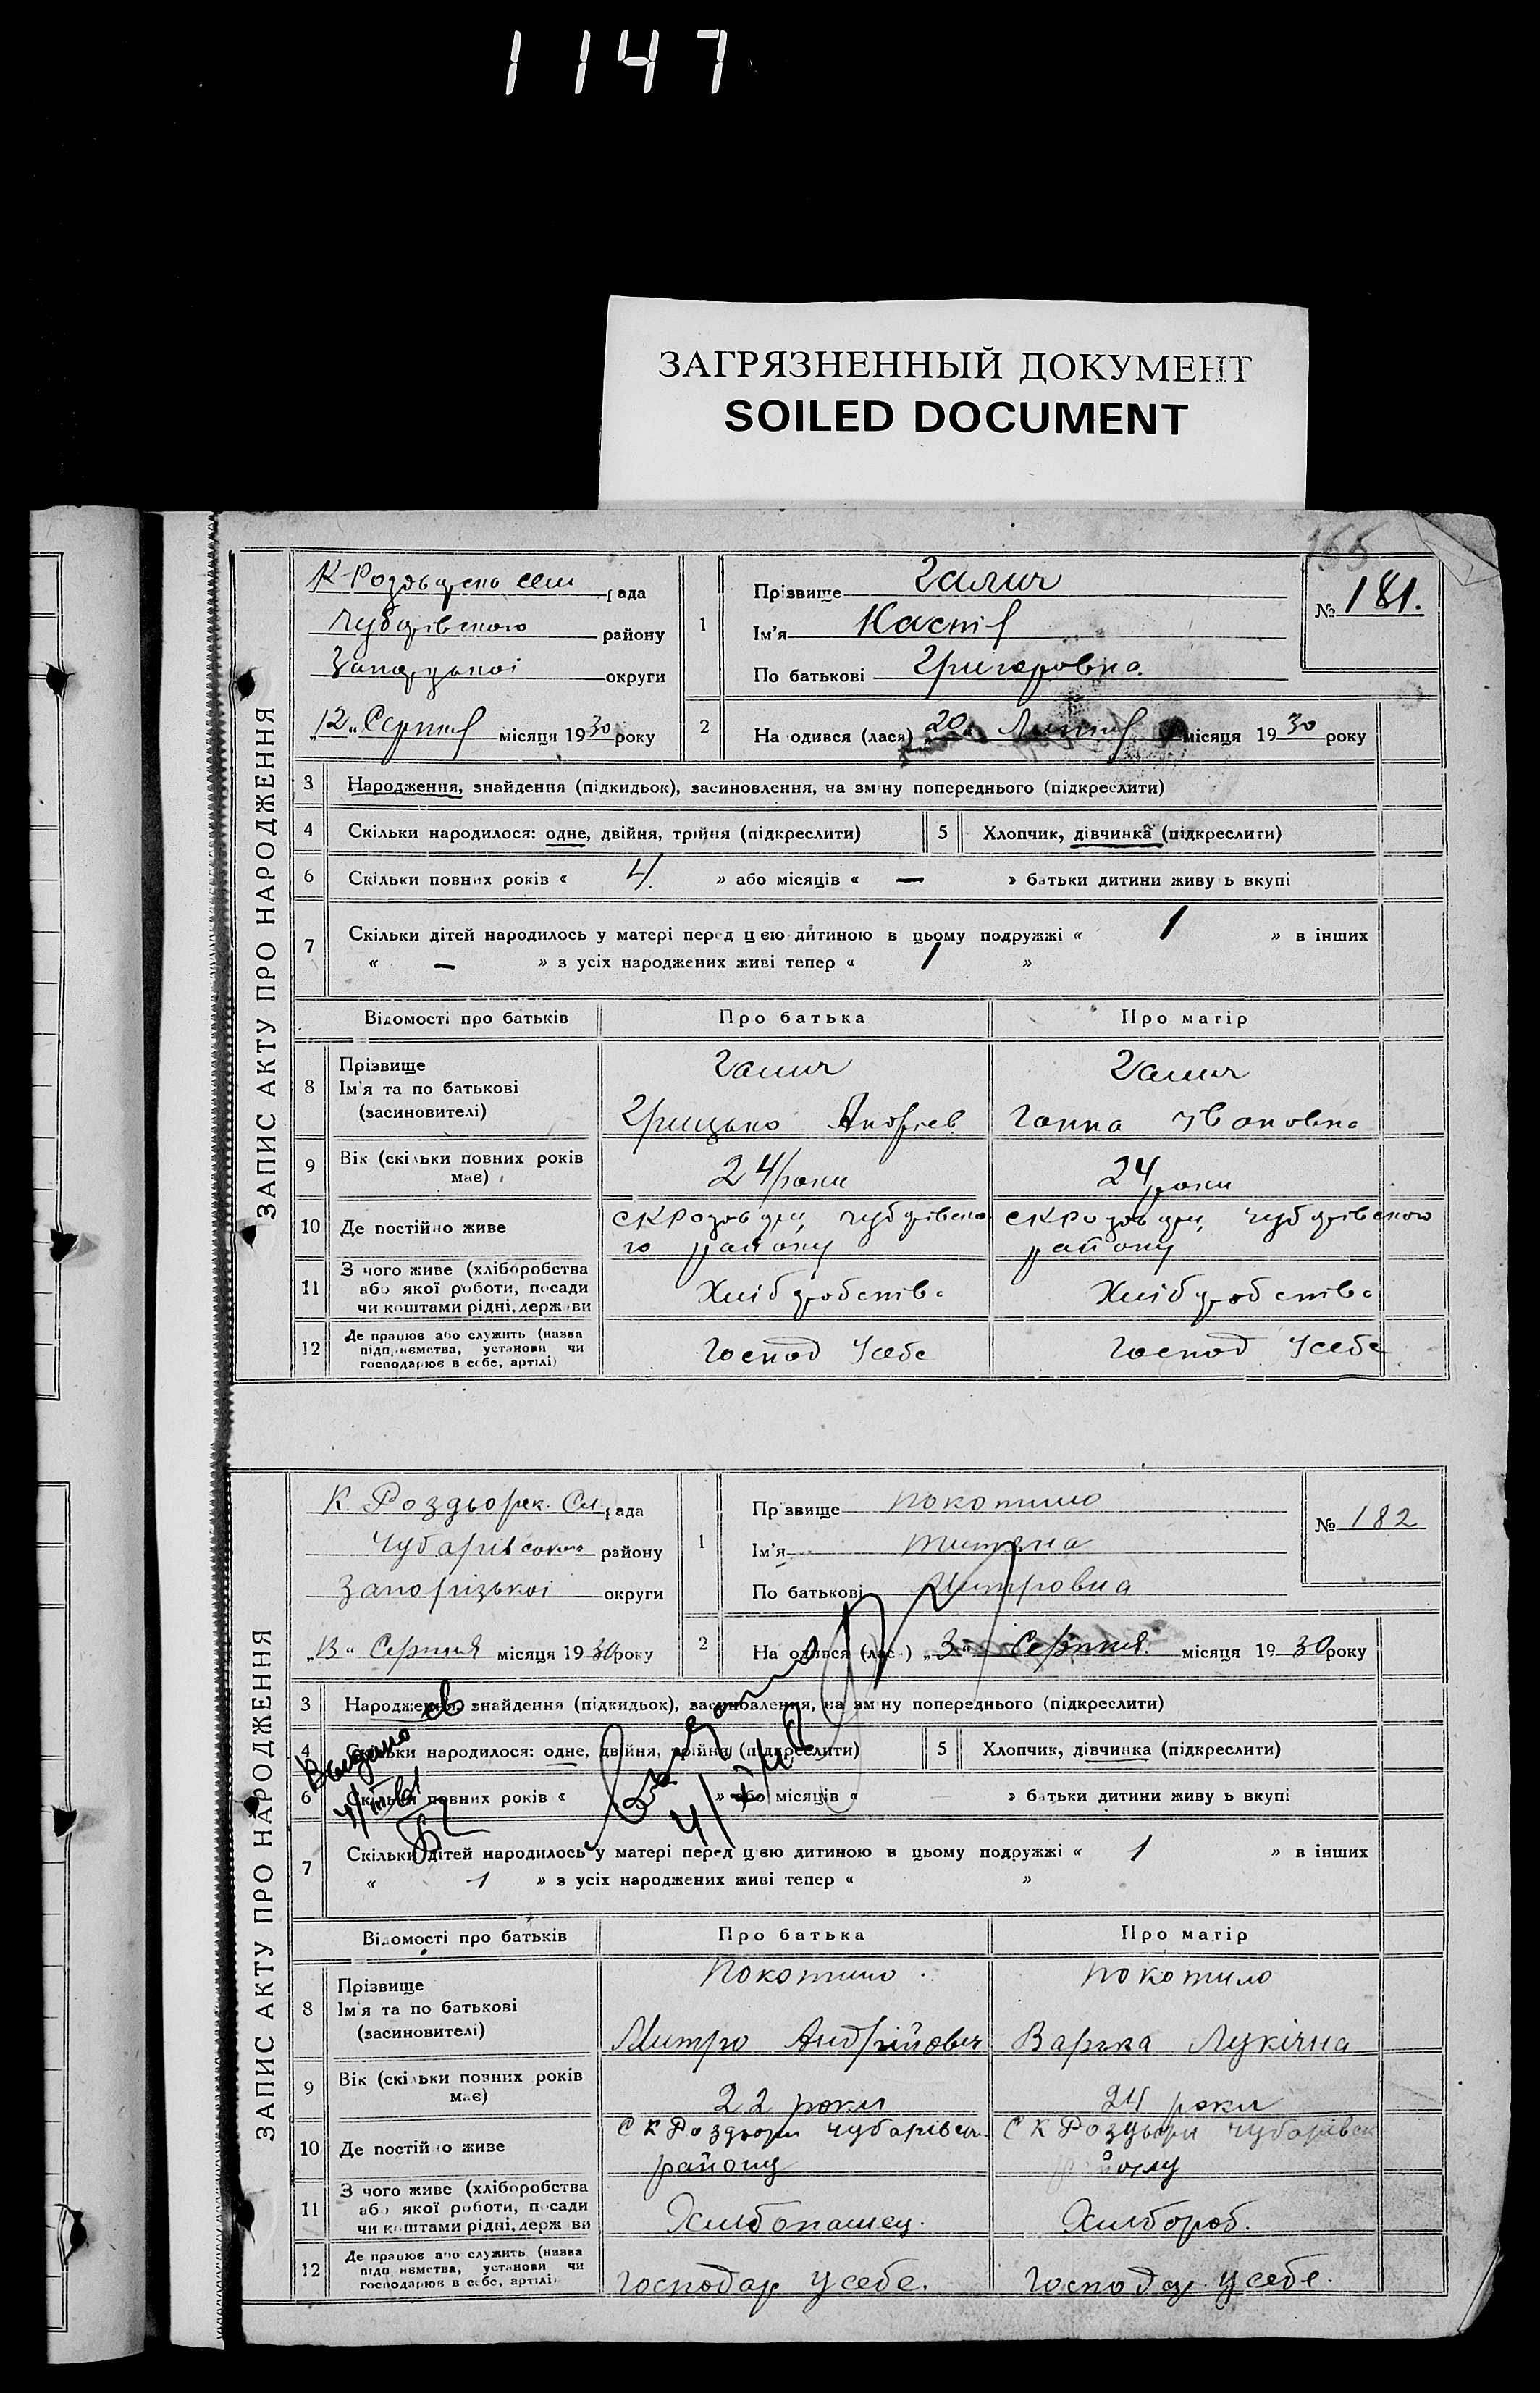 1147
ЗАГРЯЗНЕННЫЙ ДОКУМЕНТ
SOILED DOCUMENT
165
ЗАПИС АКТУ ПРО НАРОДЖЕННЯ
К Роздьорсь сель рада
Чубарівського району
Запорізької округи
„12„ Серпня місяця 1930 року
1
Прізвище Галич
Ім'я Настя
По батькові Григоровна.
№ 181.
2
На одився (лася) „20„ Липня місяця 1930 року
3 Народження, знайдення (підкидьок), засиновлення, на зміну попереднього (підкреслити)
4 Скільки народилося: одне, двійня, трійня (підкреслити)
5 Хлопчик, дівчинка (підкреслити)
6 Скільки повних років « 4. » або місяців « — » батьки дитини живу ь вкупі
7 Скільки дітей народилось у матері перед цією дитиною в цьому подружжі « 1 » в інших
« — » з усіх народжених живі тепер « 1 »
Відомості про батьків Про батька Про матір
8 Прізвище Галич Галич
Ім'я та по батькові
(засиновителі) Грицько Андріев Ганна Івановна
9 Вік (скільки повних років має) 24 роки 24 роки
10 Де постійно живе с К Роздьори, Чубарівсько с К Роздьори, Чубарівського
го району району
11 З чого живе (хліборобства
або якої роботи, посади
чи коштами рідні, держ ви Хліборобство Хліборобство
12 Де працює або служить (назва
підп. иємства, установи чи
господарює в себе, артілі) Господ Усебе Господ Усебе
ЗАПИС АКТУ ПРО НАРОДЖЕННЯ
К. Роздьорск. Сл. рада
Чубарівського району
Запорізької округи
„13„ Серпня місяця 1930 року
1
Прізвище Покотило
Ім'я Титяна
По батькові Митровна
№ 182
2
На одився (лас ) „3„ Серпня. місяця 1930 року
3 Народження, знайдення (підкидьок), засиновлення, на зміну попереднього (підкреслити)
4 Скільки народилося: одне, двійня, трійня (підкреслити)
5 Хлопчик, дівчинка (підкреслити)
Выдано св
6 Скільки повних років « » або місяців « » батьки дитини живу ь вкупі
7 Скільки дітей народилось у матері перед цією дитиною в цьому подружжі « 1 » в інших
« 1 » з усіх народжених живі тепер « »
Відомості про батьків Про батька Про матір
8 Прізвище Покотило. Покотило
Ім'я та по батькові
(засиновителі) Митро Андрійович Варька Лукічна
9 Вік (скільки повних років має) 22 роки 24 роки
10 Де постійно живе С К Роздьори Чубарівськ. С К Роздьори Чубарівск
району району
11 З чого живе (хліборобства
або якої роботи, посади
чи коштами рідні, держ ви Хлібопашец. Хлібороб.
12 Де працює або служить (назва
підп. иємства, установи чи
господарює в себе, артілі) Господар у себе. Господар у себе.